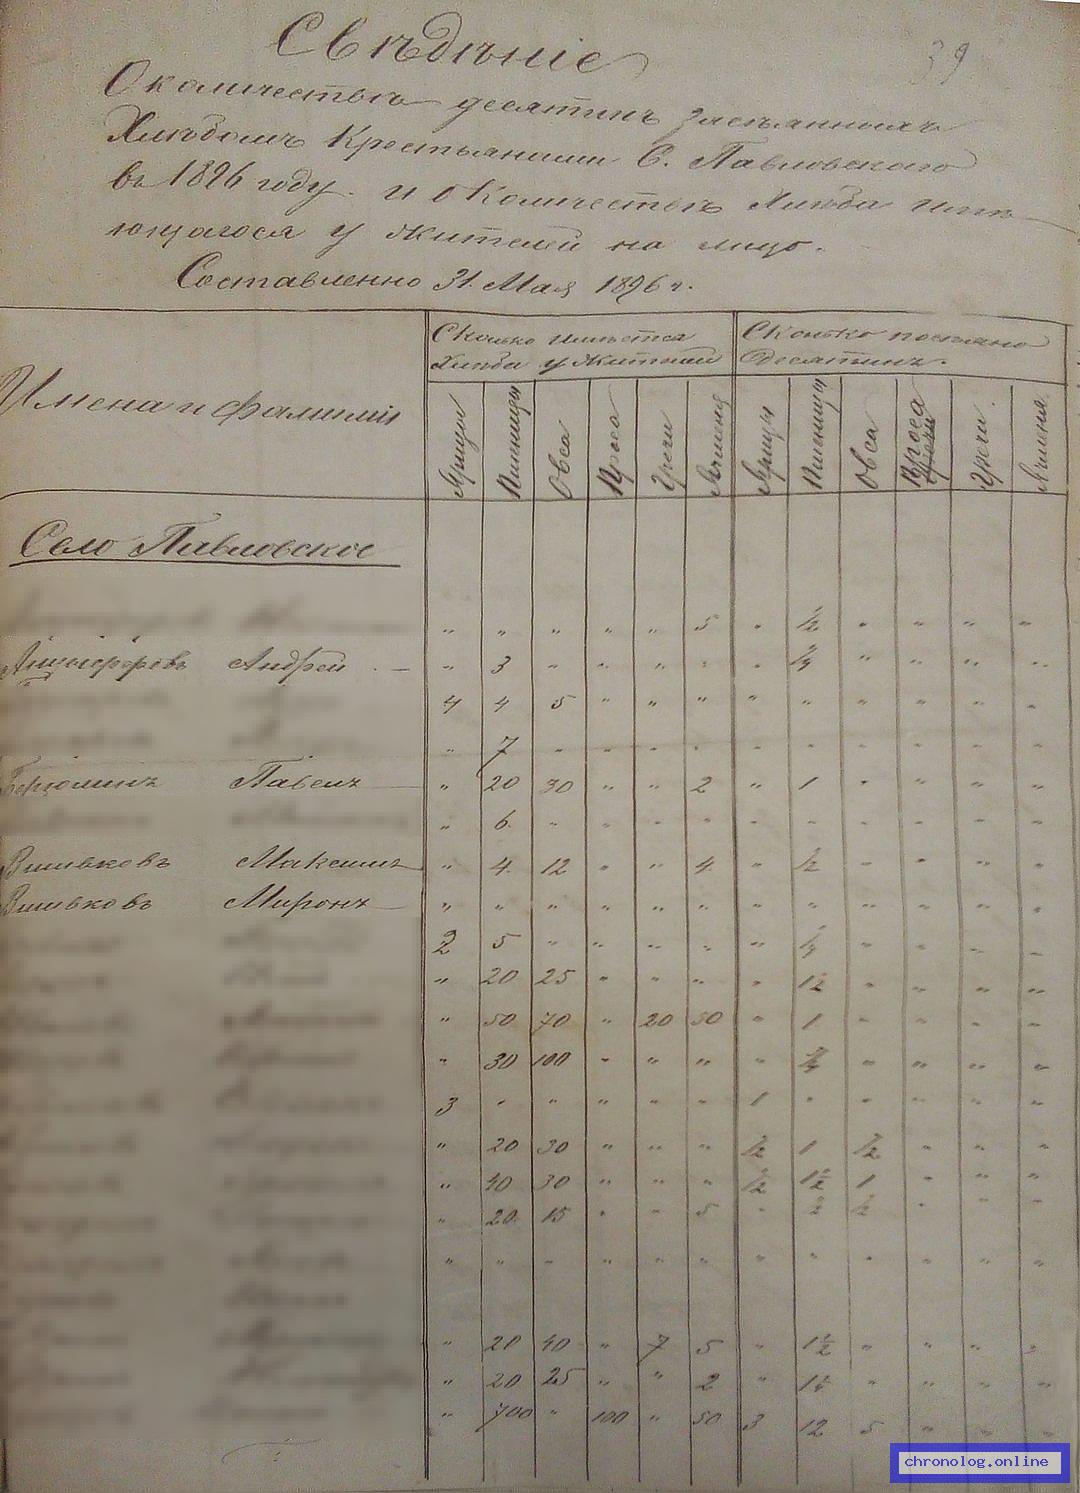 Свѣдѣніе
39
О количествѣ десятинъ засѣянныхъ
Хлѣбомъ Крестьянами С. Павловскаго
въ 1896 году. и о Количествѣ Хлѣба имѣ
ющагося у жителей на лицо.
Составленно 31. Мая 1896 г.
Имена и фамиліи
Сколько имѣется
Хлѣба у Жителей
Сколько посѣяно
Десятинъ.
Ярицы Пшеницы Овса Проса Гречи Ячменя Ярицы Пшеницы Овса Проса Гречи Ячменя
Село Павловское
" " " " " 5 " ½ " " " "
Анцыферовъ Андрей " 3 " " " " " ¼ " " " "
4 4 5 " " " " " " " " "
" 7 " " " " " " " " " "
Берюлинъ Павелъ " 20 30 " " 2 " 1 " " " "
" 6. " " " " " " " " " "
Вшивковъ Максимъ " 4. 12 " " 4. " ½ " " " "
Вшивковъ Миронъ " " " " " " " " " " " "
2 5 " " " " " ¼ " " " "
" 20 25 " " " " 1½ " " " "
" 50 70 " 20 50 " 1 " " " "
" 30 100 " " " " ¾ " " " "
3 " " " " " 1 " " " " "
" 20 30 " " " ½ 1 ½ " " "
" 40 30 " " " ½ 1½ 1 " " "
" 20 15 " " 5 " ½ " " "
" " " " " " " " " " " "
" 20 40 " 7 5 " 1½ " " " "
" 20 25 " " 2 " " " " "
" 700 " 100 " 50 3 12 5 " " "
chronolog.online